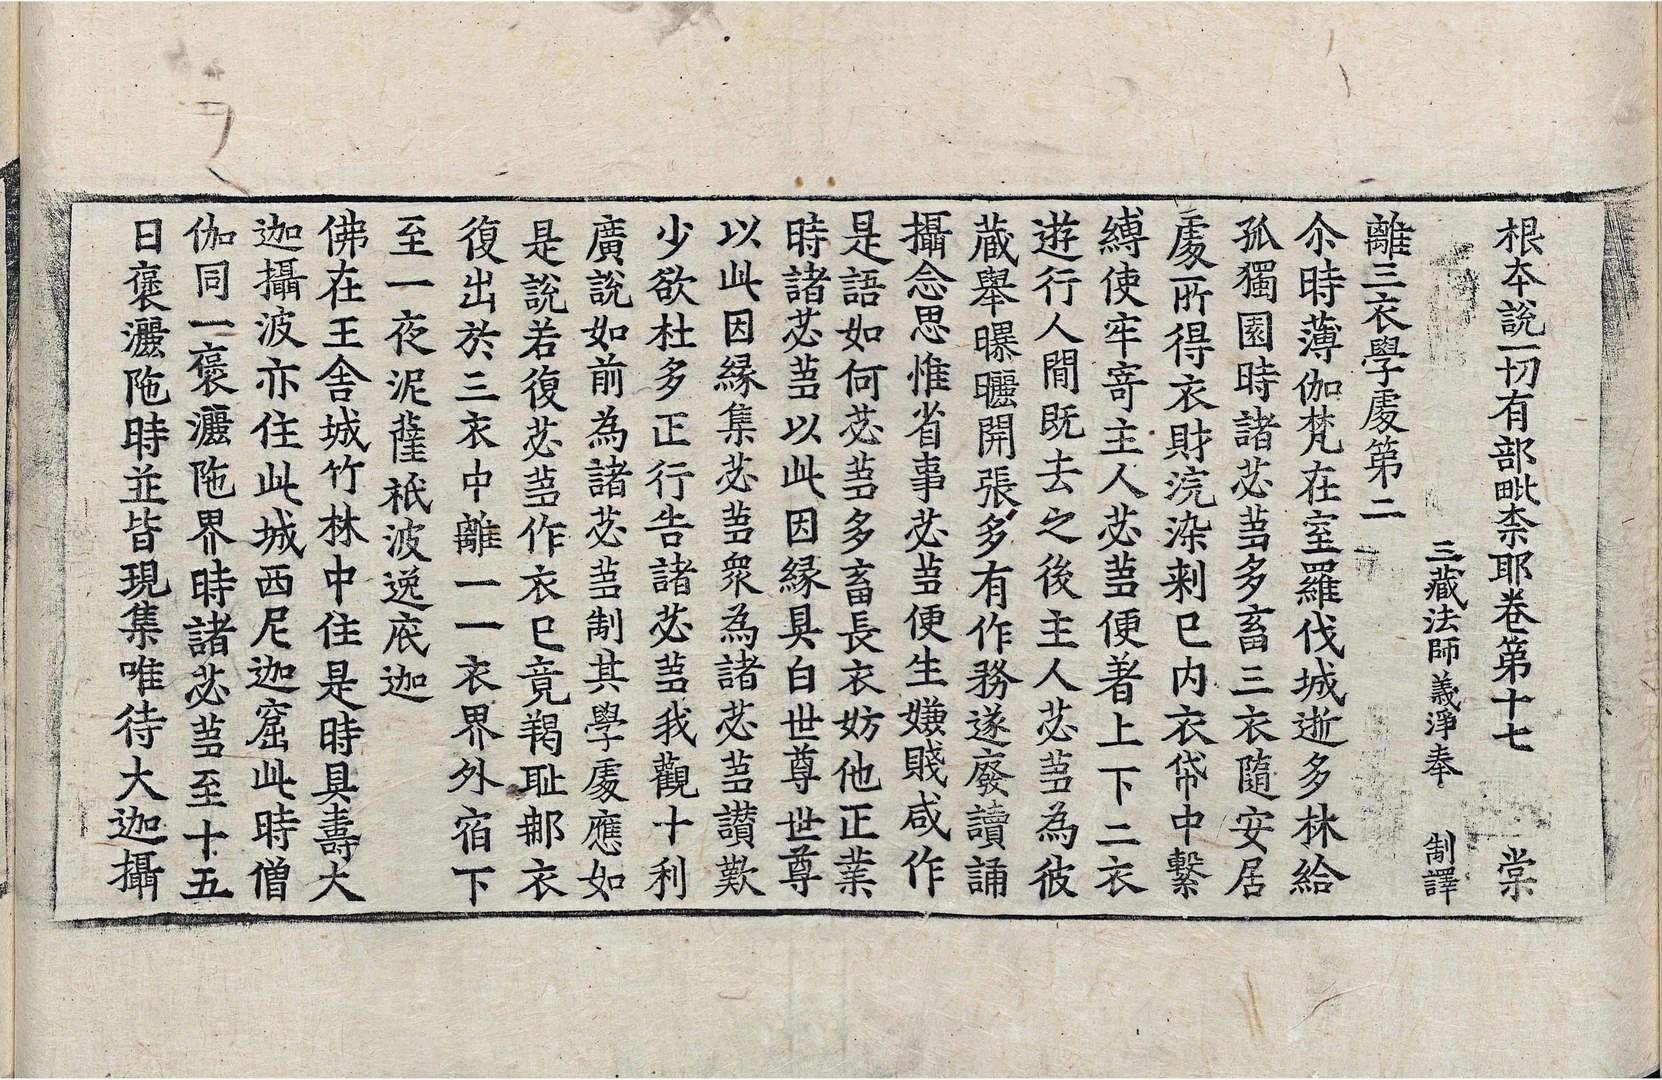 根本說一切有部毗柰耶卷第十七 棠
三藏法師義淨奉 制譯
離三衣學處第二
尒時薄伽梵在室羅伐城逝多林給
孤獨園時諸苾蒭多畜三衣隨安居
處所得衣財浣染刺已內衣帒中繫
縛使牢寄主人苾蒭便著上下二衣
遊行人間既去之後主人苾蒭為彼
藏舉曝曬開張多有作務遂廢讀誦
攝念思惟省事苾蒭便生嫌賤咸作
是語如何苾蒭多畜長衣妨他正業
時諸苾蒭以此因縁具白世尊世尊
以此因縁集苾蒭眾為諸苾蒭讚歎
少欲杜多正行告諸苾蒭我觀十利
廣說如前為諸苾蒭制其學處應如
是說若復苾蒭作衣已竟羯耻郍衣
復出於三衣中離一一衣界外宿下
至一夜泥薩祇波逸底迦
佛在王舍城竹林中住是時具壽大
迦攝波亦住此城西尼迦窟此時僧
伽同一褒灑陁界時諸苾蒭至十五
日褒灑陁時並皆現集唯待大迦攝